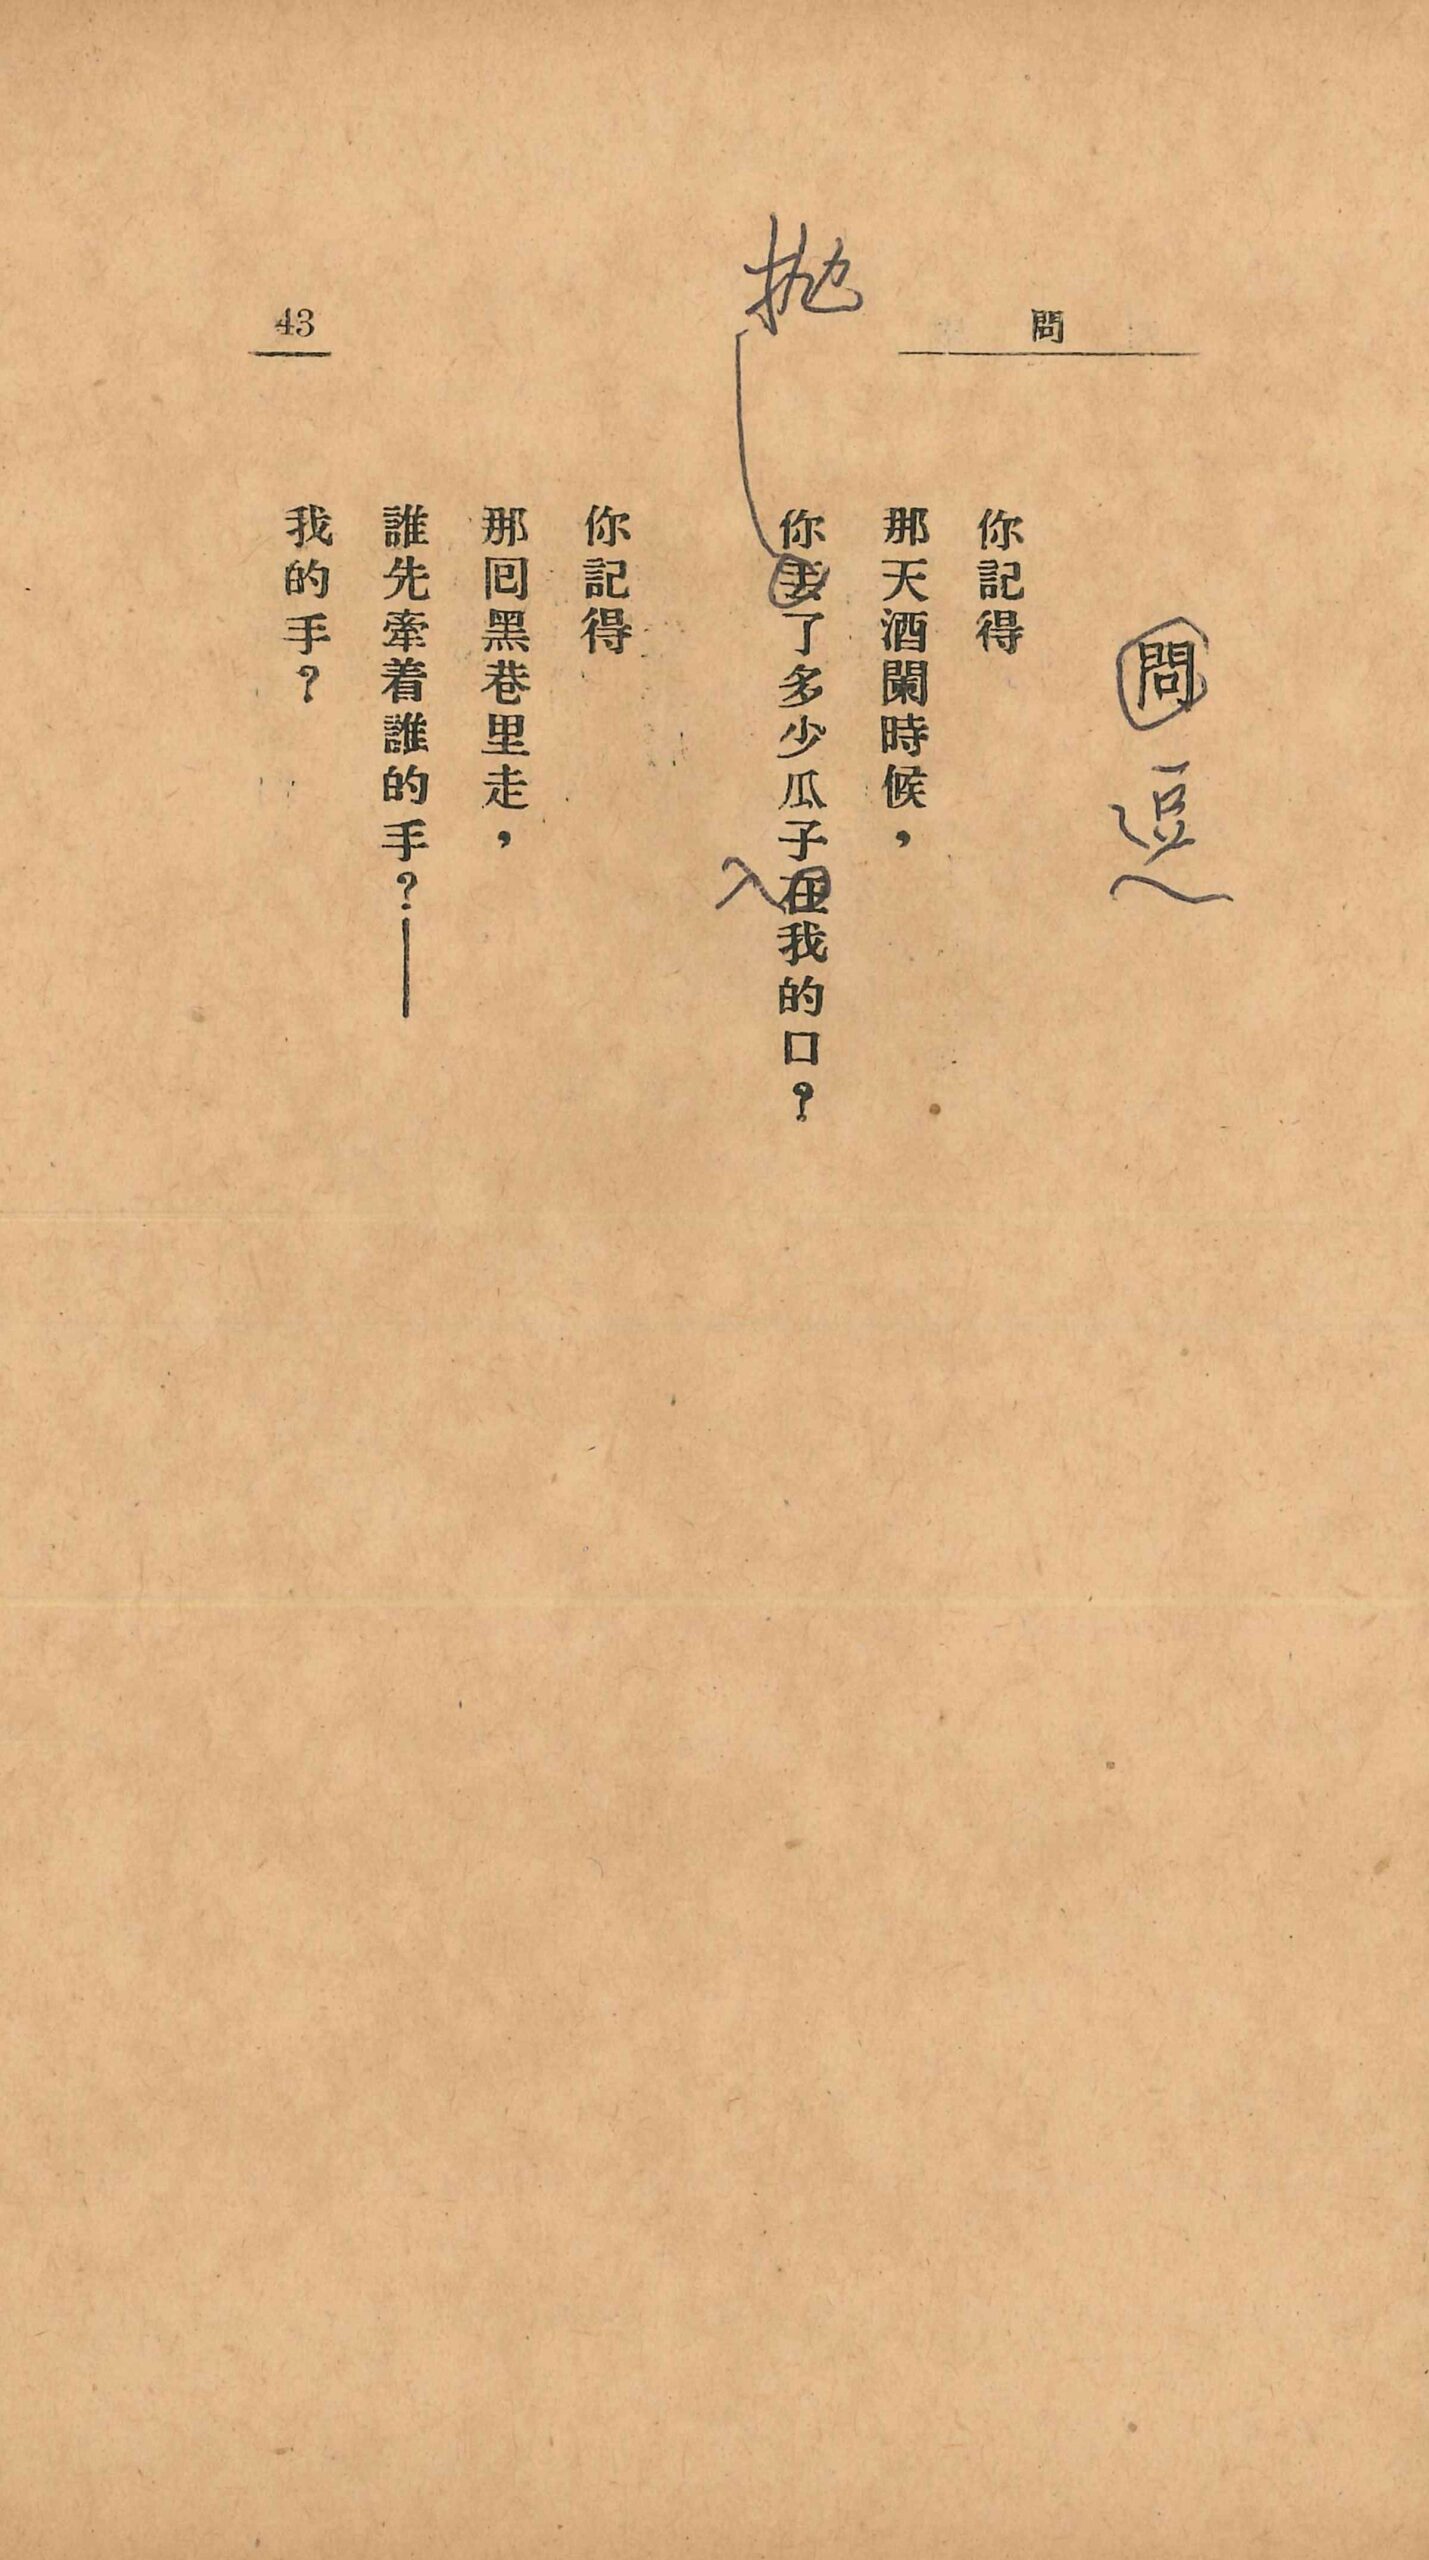 問
43
問
逗
你記得
那天酒闌時候，
拋
你丟了多少瓜子在我的口？
入
你記得
那囘黑巷里走，
誰先牽着誰的手？——
我的手？